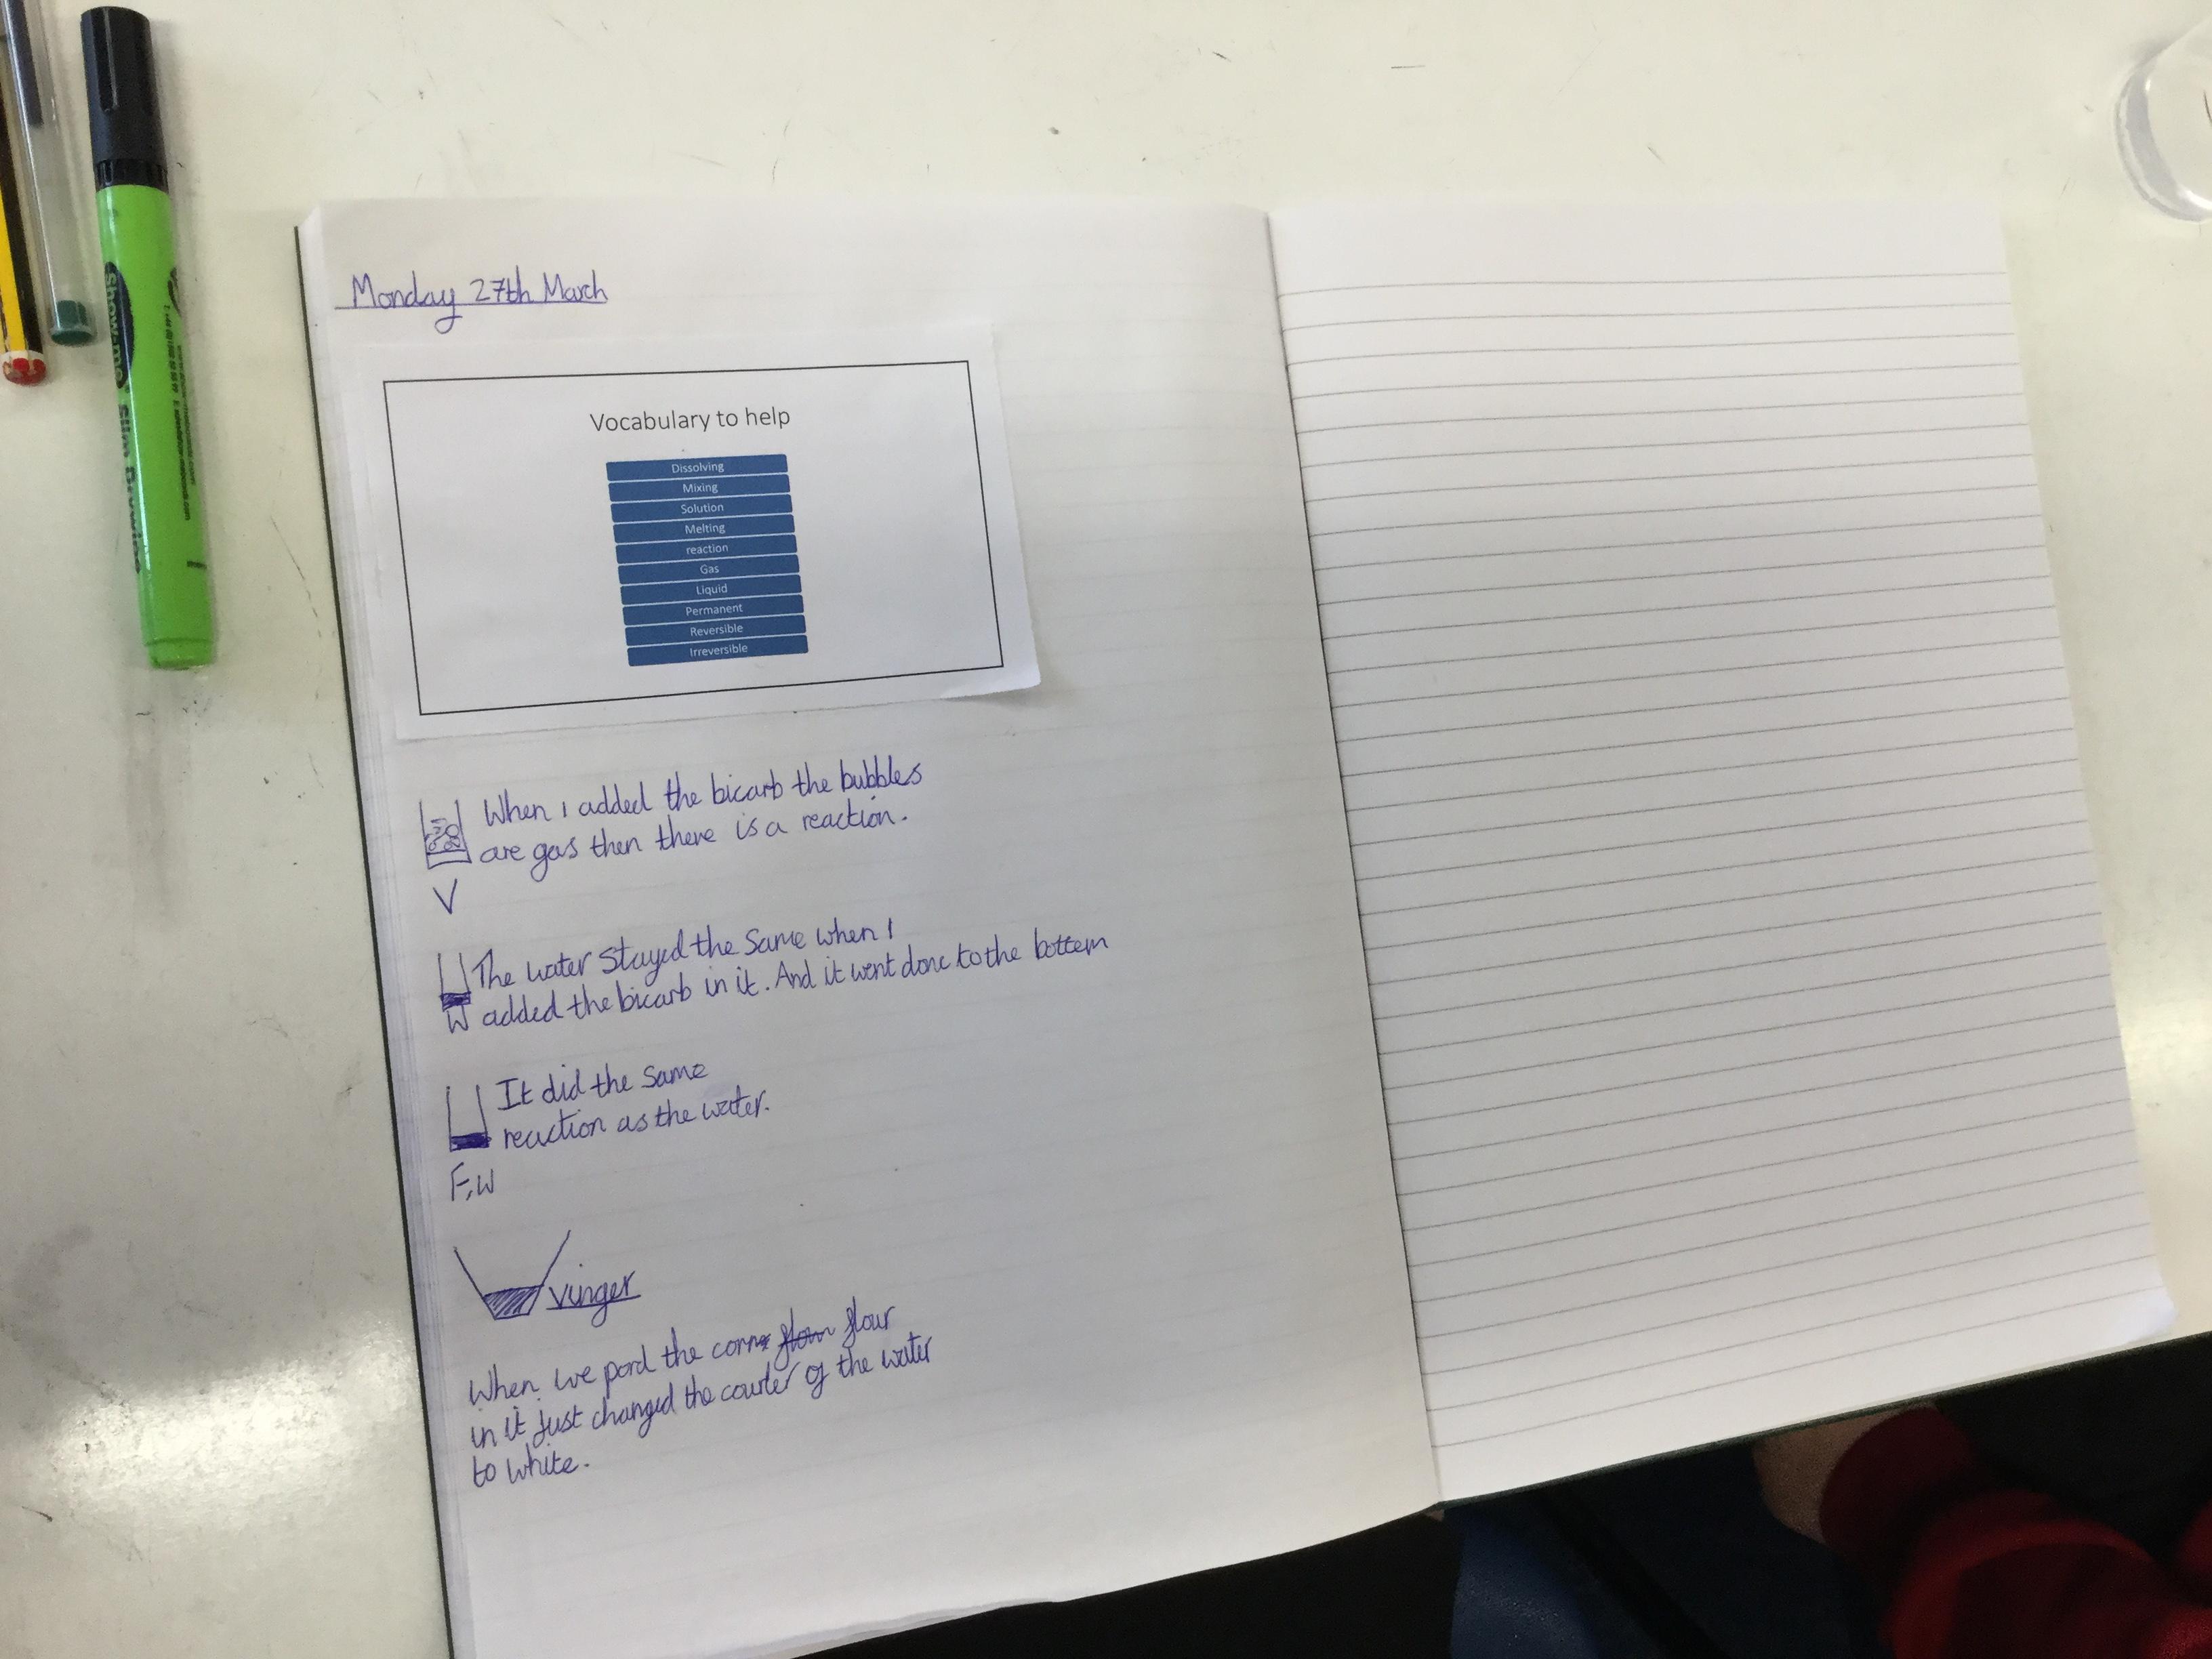 Showme
Slim Drywipe
Monday 27th March
Vocabulary to help
Dissolving
Mixing
Solution
Melting
reaction
Gas
Liquid
Permanent
Reversible
Irreversible
When I added the bicarb the bubbles
are gas then there is a reaction.
V
The water stayed the same when I
added the bicarb in it. And it went done to the bottem
W
It did the same
reaction as the water.
F,W
vinger
When we pord the corn flour
in it just changed the couler of the water
to white.